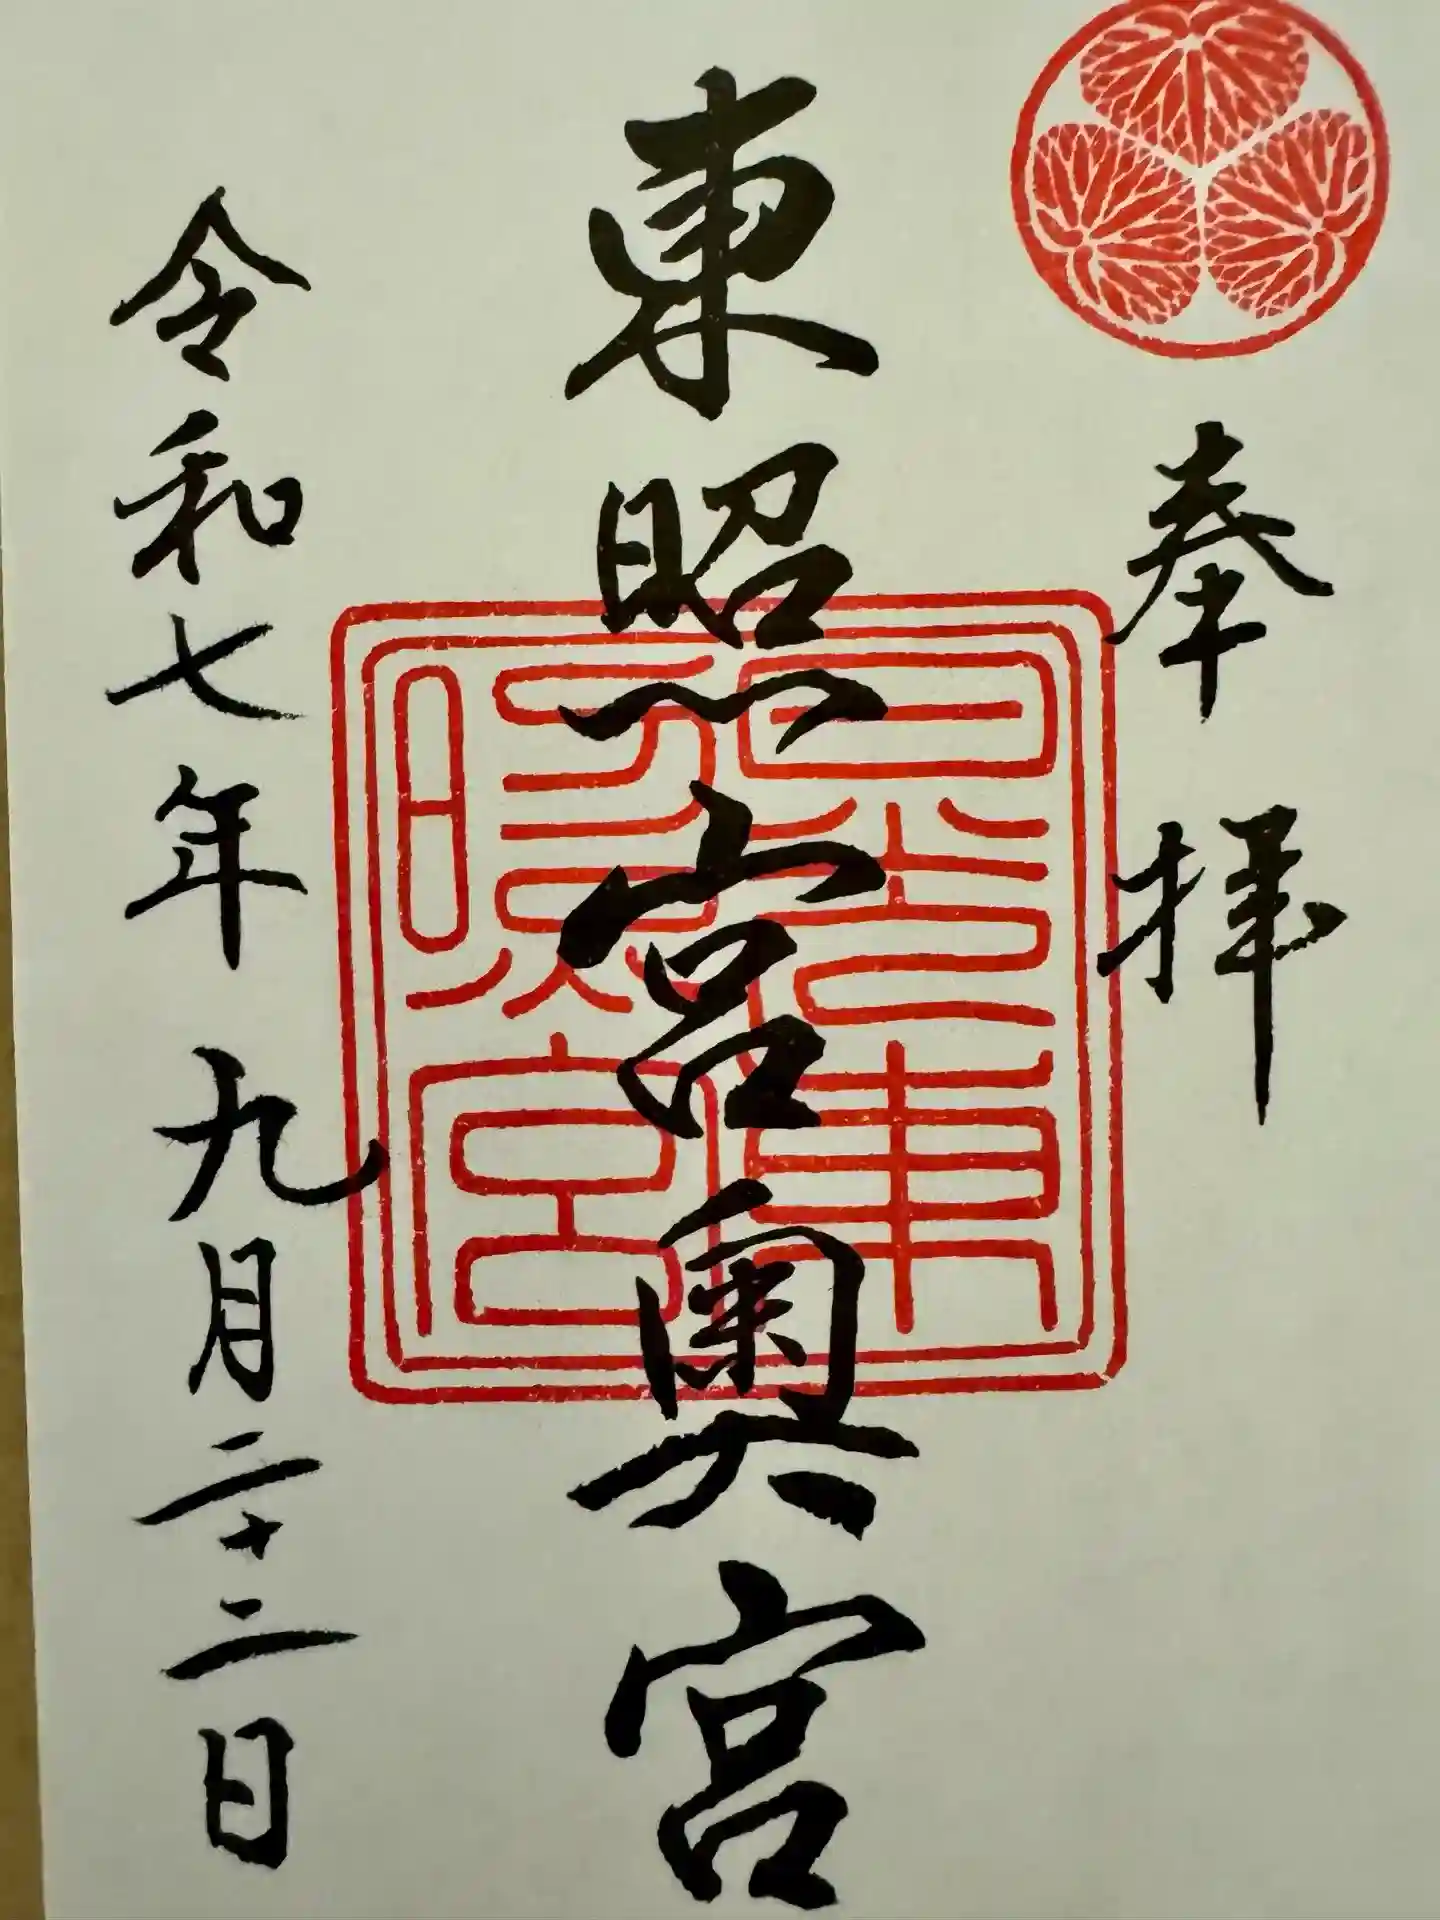 奉拝
東照宮奥宮
令和七年九月二十二日